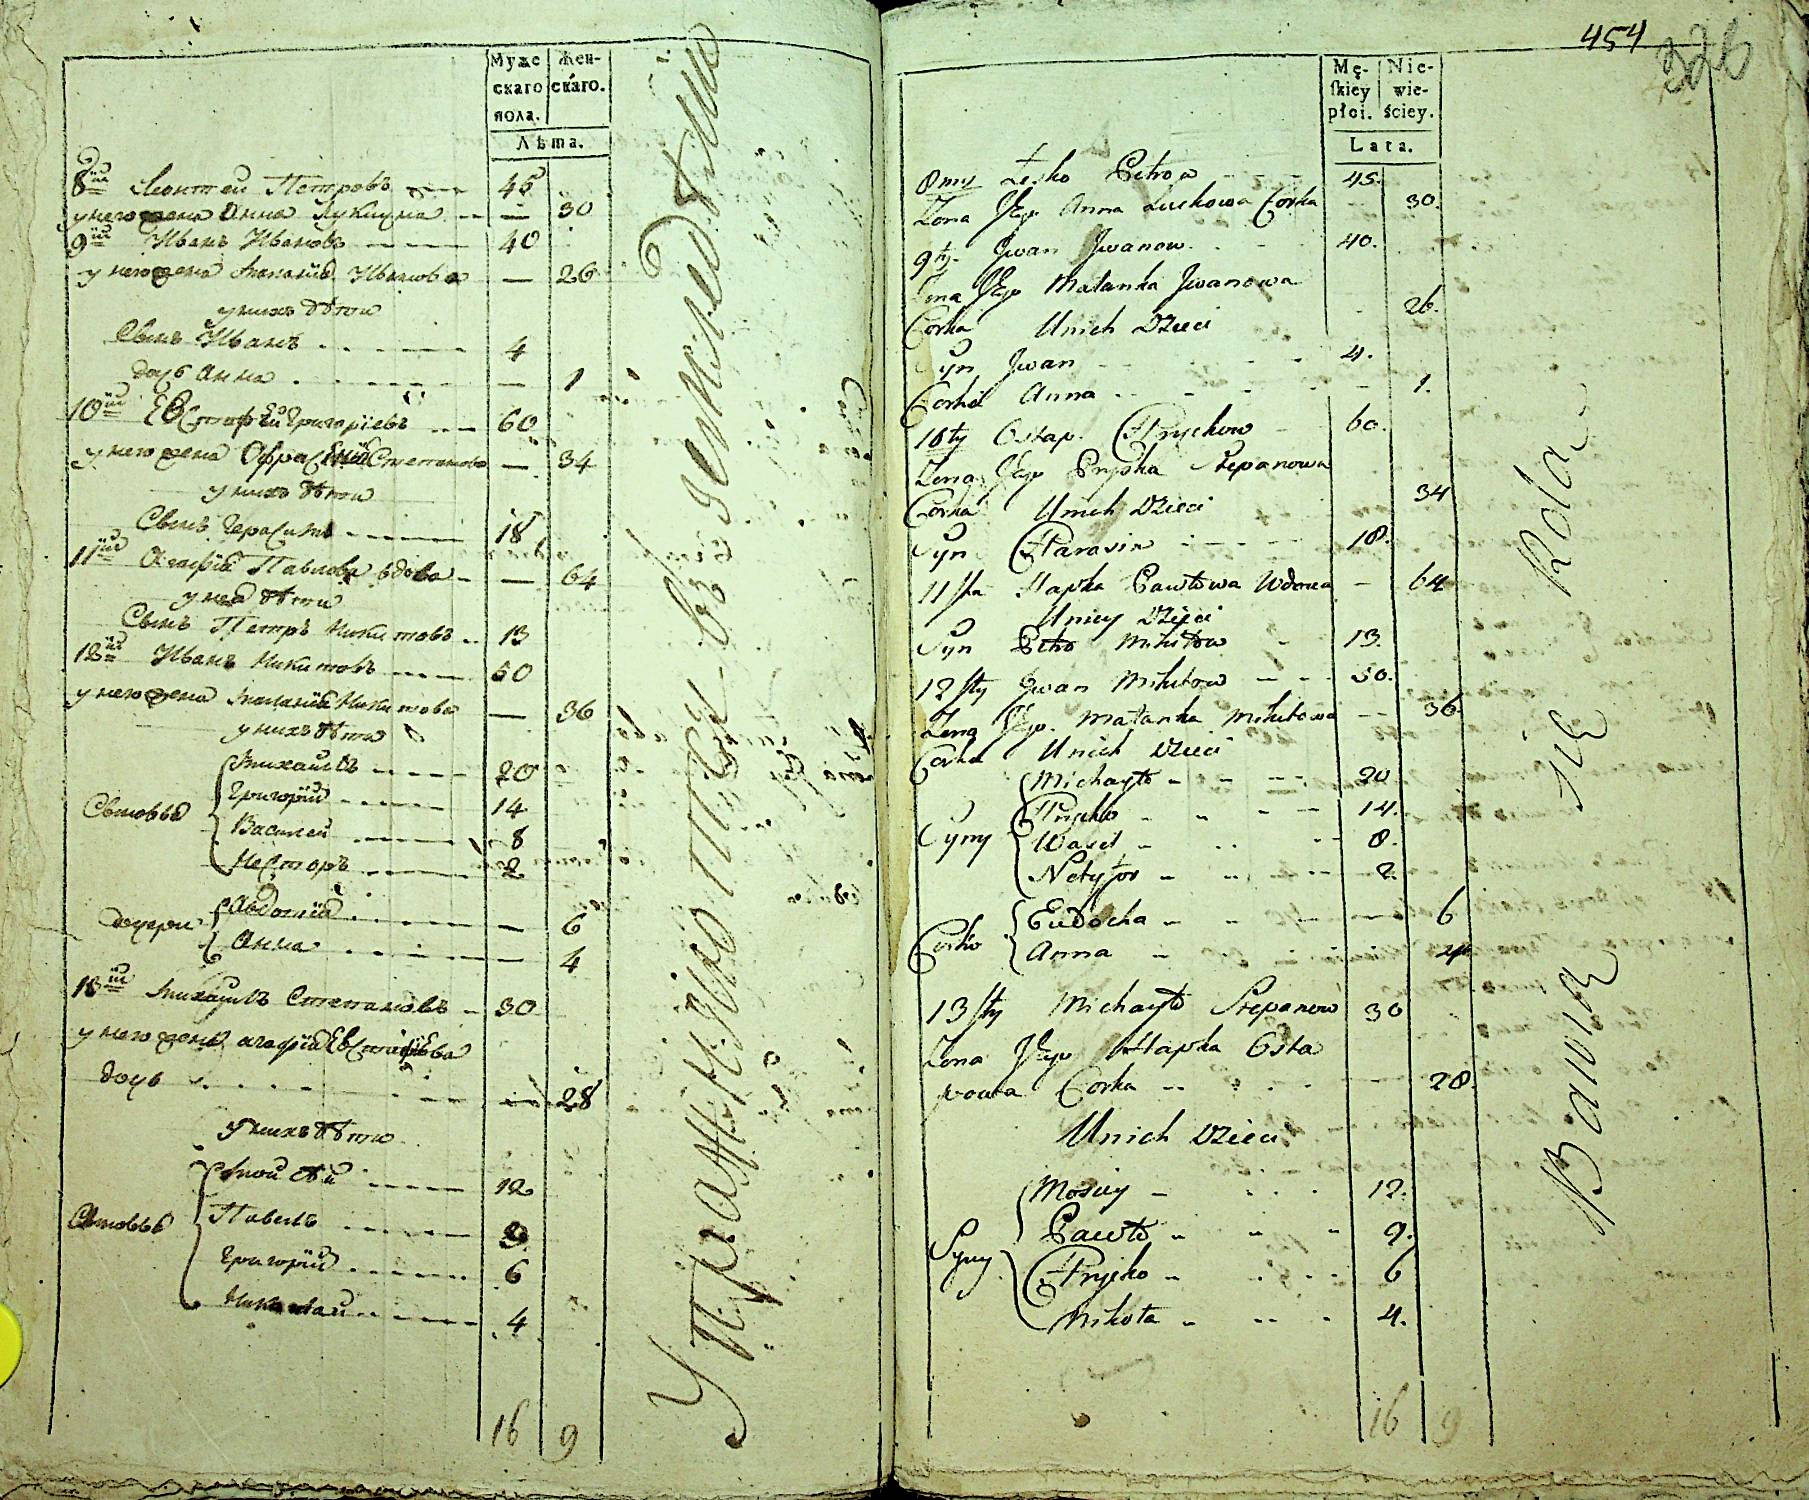 Муже
скаго
пола.
Жен-
скаго.
Лѣта.
8ий Леонтей Петровъ 45
у него жена Анна Лукина — 30
9ий Иванъ Ивановъ 40
у него жена Маланія Иванова — 26
у нихъ дѣти
Сынъ Иванъ 4
дочь Анна — 1
10ий Евстафѣй Григоріевъ 60
у него жена Офрасенія Степанова — 34
у нихъ дѣти
Сынъ Герасимъ 18
11ий Агафія Павлова вдова — 64
у нея дѣти
Сынъ Петръ Никитовъ 13
12ий Иванъ Никитовъ 50
у него жена Маланія Никитова — 36
у нихъ дѣти
Сыновья
Михаилъ 20
Григорій 14
Василей 8
Несторъ 2
дочери
Авдотія — 6
Анна — 4
13ий Михаилъ Степановъ 30
у него жена агафія Евстафіева
дочь — 28
у нихъ дѣти
Сыновья
Мойсѣй 12
Павелъ 9
Григорій 6
Николай 4
16 9
Упражняются въ земледѣліи
454
326
Mę-
skiey
płci.
Nie-
wie-
ściey.
Lata.
8my Leśko Petrow 45.
Zona Jego Anna Luckowa Corka 30.
9ty Jwan Jwanow 40.
Zona Jego Małanka Jwanowa
Corka Unich Dzieci 26.
Syn Jwan 4.
Corka Anna 1.
10ty Ostap Hryckow 60.
Zona Jego Pryśka Stepanowa
Corka Unich Dzieci 34
Syn Harasim 18.
11sta Hapka Pawłowa Wdowa — 64
Uniey Dzieci
Syn Petro Mikitow 13.
12sty Jwan Mikitow 50.
Zona Jego Małanka Mikitowa 36.
Corka Unich Dzieci
Syny
Michayło 20
Hryćko 14.
Wasil 8.
Netyfor 2.
Corki
Eudocha 6
Anna 4
13sty Michayło Stepanow 30
Zona Jego Hapka Osta
powa Corka 28.
Unich Dzieci
Syny
Mosiey 12.
Pawło 9.
Hryćko 6
Mikoła 4.
16 9
Bawią się Rolą